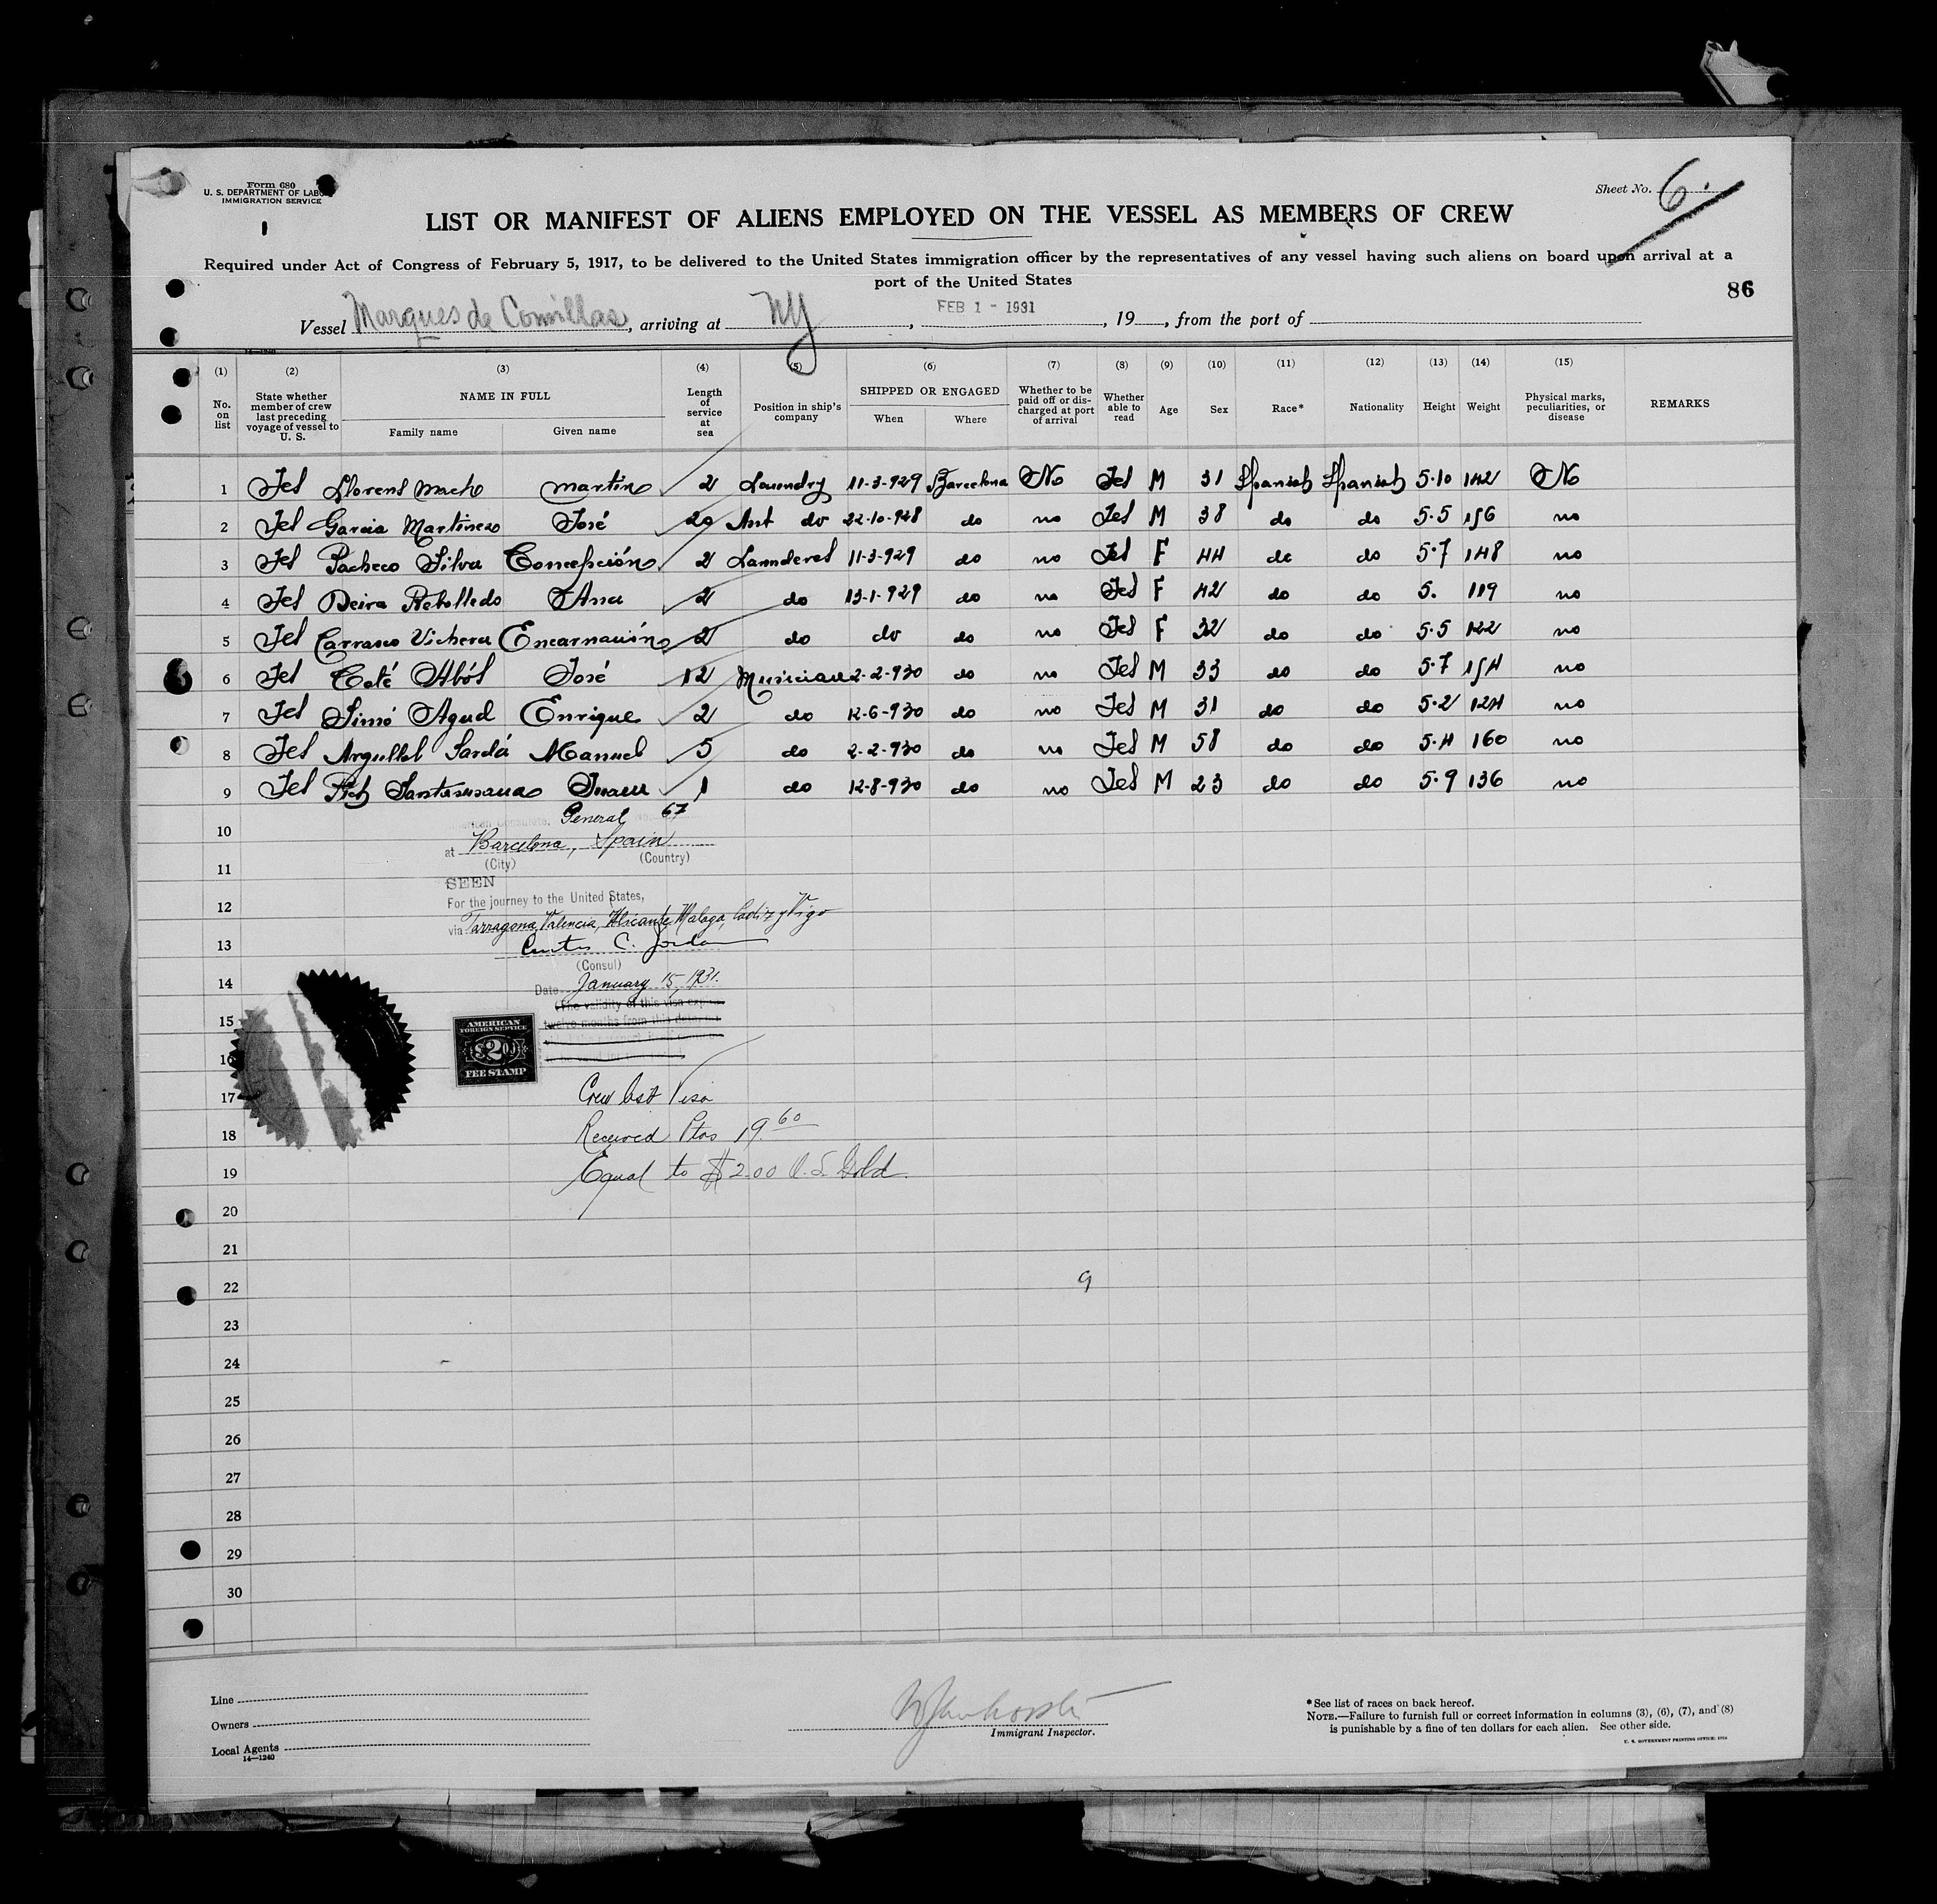 Form 680
U. S. DEPARTMENT OF LABO
IMMIGRATION SERVICE
Sheet No. 6.
LIST OR MANIFEST OF ALIENS EMPLOYED ON THE VESSEL AS MEMBERS OF CREW
Required under Act of Congress of February 5, 1917, to be delivered to the United States immigration officer by the representatives of any vessel having such aliens on board upon arrival at a
port of the United States
86
Vessel Marques de Comillas, arriving at NY, FEB 1 - 1931, 19, from the port of
(1) (2) (3) (4) (5) (6) (7) (8) (9) (10) (11) (12) (13) (14) (15)
No. on list State whether member of crew last preceding voyage of vessel to U. S. NAME IN FULL Family name Given name Length of service at sea Position in ship's company SHIPPED OR ENGAGED When Where Whether to be paid off or discharged at port of arrival Whether able to read Age Sex Race* Nationality Height Weight Physical marks, peculiarities, or disease REMARKS
1 Yes Llorens Macho Martin 2 Laundry 11-3-929 Barcelona No Yes M 31 Spanish Spanish 5-10 142 No
2 Yes Garcia Martinez José 20 Ast do 22-10-928 do no Yes M 38 do do 5-5 156 no
3 Yes Pacheco Silva Concepción 2 Laundress 11-3-929 do no Yes F 44 do do 5-7 148 no
4 Yes Neira Rebolledo Ana 2 do 13-1-929 do no Yes F 42 do do 5. 119 no
5 Yes Carrasco Vichera Encarnación 2 do do do no Yes F 32 do do 5-5 122 no
6 Yes Coté Abós José 12 Musician 2-2-930 do no Yes M 33 do do 5-7 154 no
7 Yes Simó Agud Enrique 2 do 12-6-930 do no Yes M 31 do do 5-2 124 no
8 Yes Argullol Sardá Manuel 5 do 2-2-930 do no Yes M 58 do do 5-4 160 no
9 Yes Santasusana Juan 1 do 12-8-930 do no Yes M 23 do do 5-9 136 no
10 American Consulate General No. 67
at Barcelona, Spain
(City) (Country)
11
SEEN
12 For the journey to the United States,
via Tarragona, Valencia, Alicante, Malaga, Cadiz y Vigo
13 Curtis C. Jordan
(Consul)
14 Date January 15, 1931.
(The validity of this visa expires
15 twelve months from this date
AMERICAN
FOREIGN SERVICE
$2.00
FEE STAMP
16
17 Crew list Visa
18 Received Ptas 19.60
19 Equal to $2.00 U.S. Gold.
20
21
22 9
23
24
25
26
27
28
29
30
Line
Owners
Local Agents
14—1240
Immigrant Inspector.
*See list of races on back hereof.
NOTE.—Failure to furnish full or correct information in columns (3), (6), (7), and (8)
is punishable by a fine of ten dollars for each alien. See other side.
U. S. GOVERNMENT PRINTING OFFICE